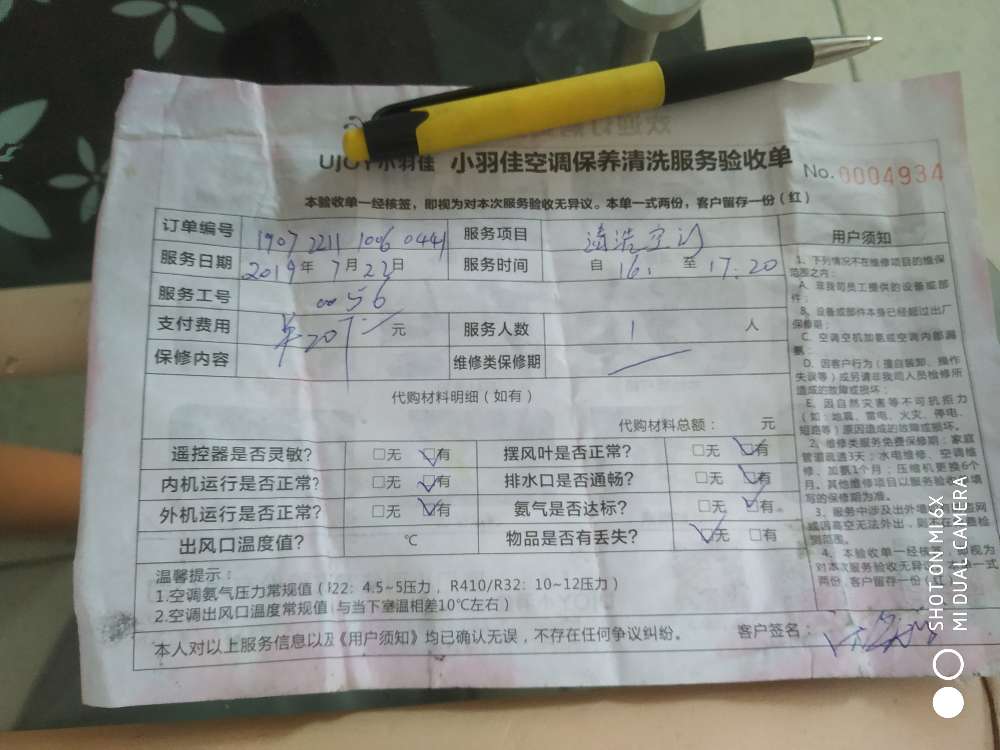 UJOY小羽佳 小羽佳空调保养清洗服务验收单 No.0004934
本验收单一经核签，即视为对本次服务验收无异议。本单一式两份，客户留存一份（红）
订单编号 1907 2211 1006 0441 服务项目 清洗空调
服务日期 2019年7月22日 服务时间 自 16: 至 17:20
服务工号 0056
支付费用 元 服务人数 1 人
保修内容 维修类保修期
代购材料明细（如有）
代购材料总额： 元
遥控器是否灵敏？ □无 ☑有 摆风叶是否正常？ □无 ☑有
内机运行是否正常？ □无 ☑有 排水口是否通畅？ □无 ☑有
外机运行是否正常？ □无 ☑有 氨气是否达标？ □无 ☑有
出风口温度值？ ℃ 物品是否有丢失？ ☑无 □有
温馨提示：
1.空调氨气压力常规值（R22：4.5~5压力，R410/R32：10~12压力）
2.空调出风口温度常规值（与当下室温相差10℃左右）
本人对以上服务信息以及《用户须知》均已确认无误，不存在任何争议纠纷。 客户签名：
用户须知
1、下列情况不在维修项目的维保
范围之内：
A、非我司员工提供的设备或部
件；
B、设备或部件本身已经超过出厂
保修期；
C、空调空机加氨或空调内部漏
氨；
D、因客户行为（擅自装卸、操作
失误等）或另请非我司人员检修所
造成的故障或损坏；
E、因自然灾害等不可抗拒力
（如：地震、雷电、火灾、停电、
短路等）原因造成的故障或损坏。
2、维修类服务免费保修期：家庭
管道疏通3天；水电维修、空调维
修、加氨1个月；压缩机更换6个
月。其他维修项目以服务验收单填
写的保修期为准。
3、服务中涉及出外墙
或因高空无法外出，则
测范围。
4、本验收单一经核签，即视为
对本次服务验收无异议。本单一式
两份，客户留存一份（红）
SHOT ON MI 6X
MI DUAL CAMERA